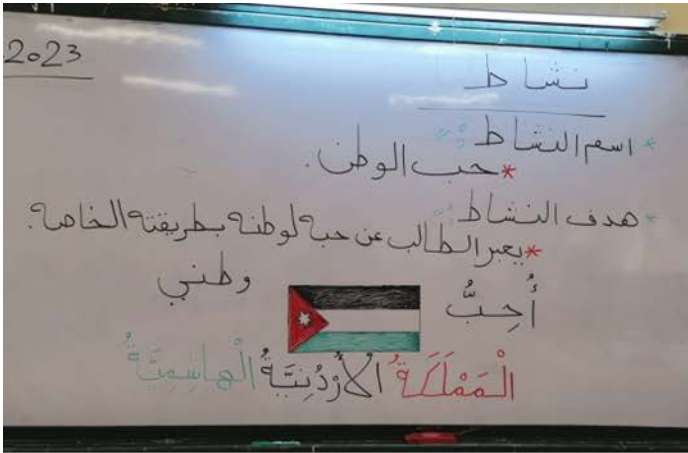 2023
نشاط
* اسم النشاط:
* حب الوطن.
* هدف النشاط:
* يعبر الطالب عن حبه لوطنه بطريقته الخاصة.
أُحِبُّ وطني
الْمَمْلَكَةُ الْأُرْدُنِيَّةُ الْهاشِمِيَّةُ